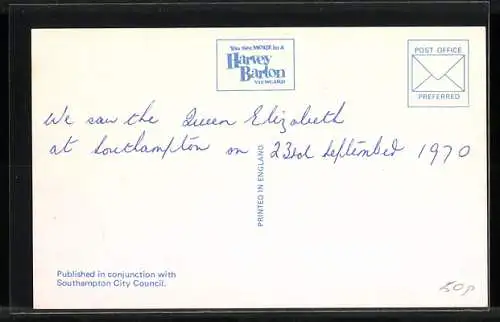 You See MORE in a
Harvey
Barton
VIEWCARD
POST OFFICE
PREFERRED
We saw the Queen Elizabeth
at Southampton on 23rd September 1970
PRINTED IN ENGLAND
Published in conjunction with
Southampton City Council.
50p